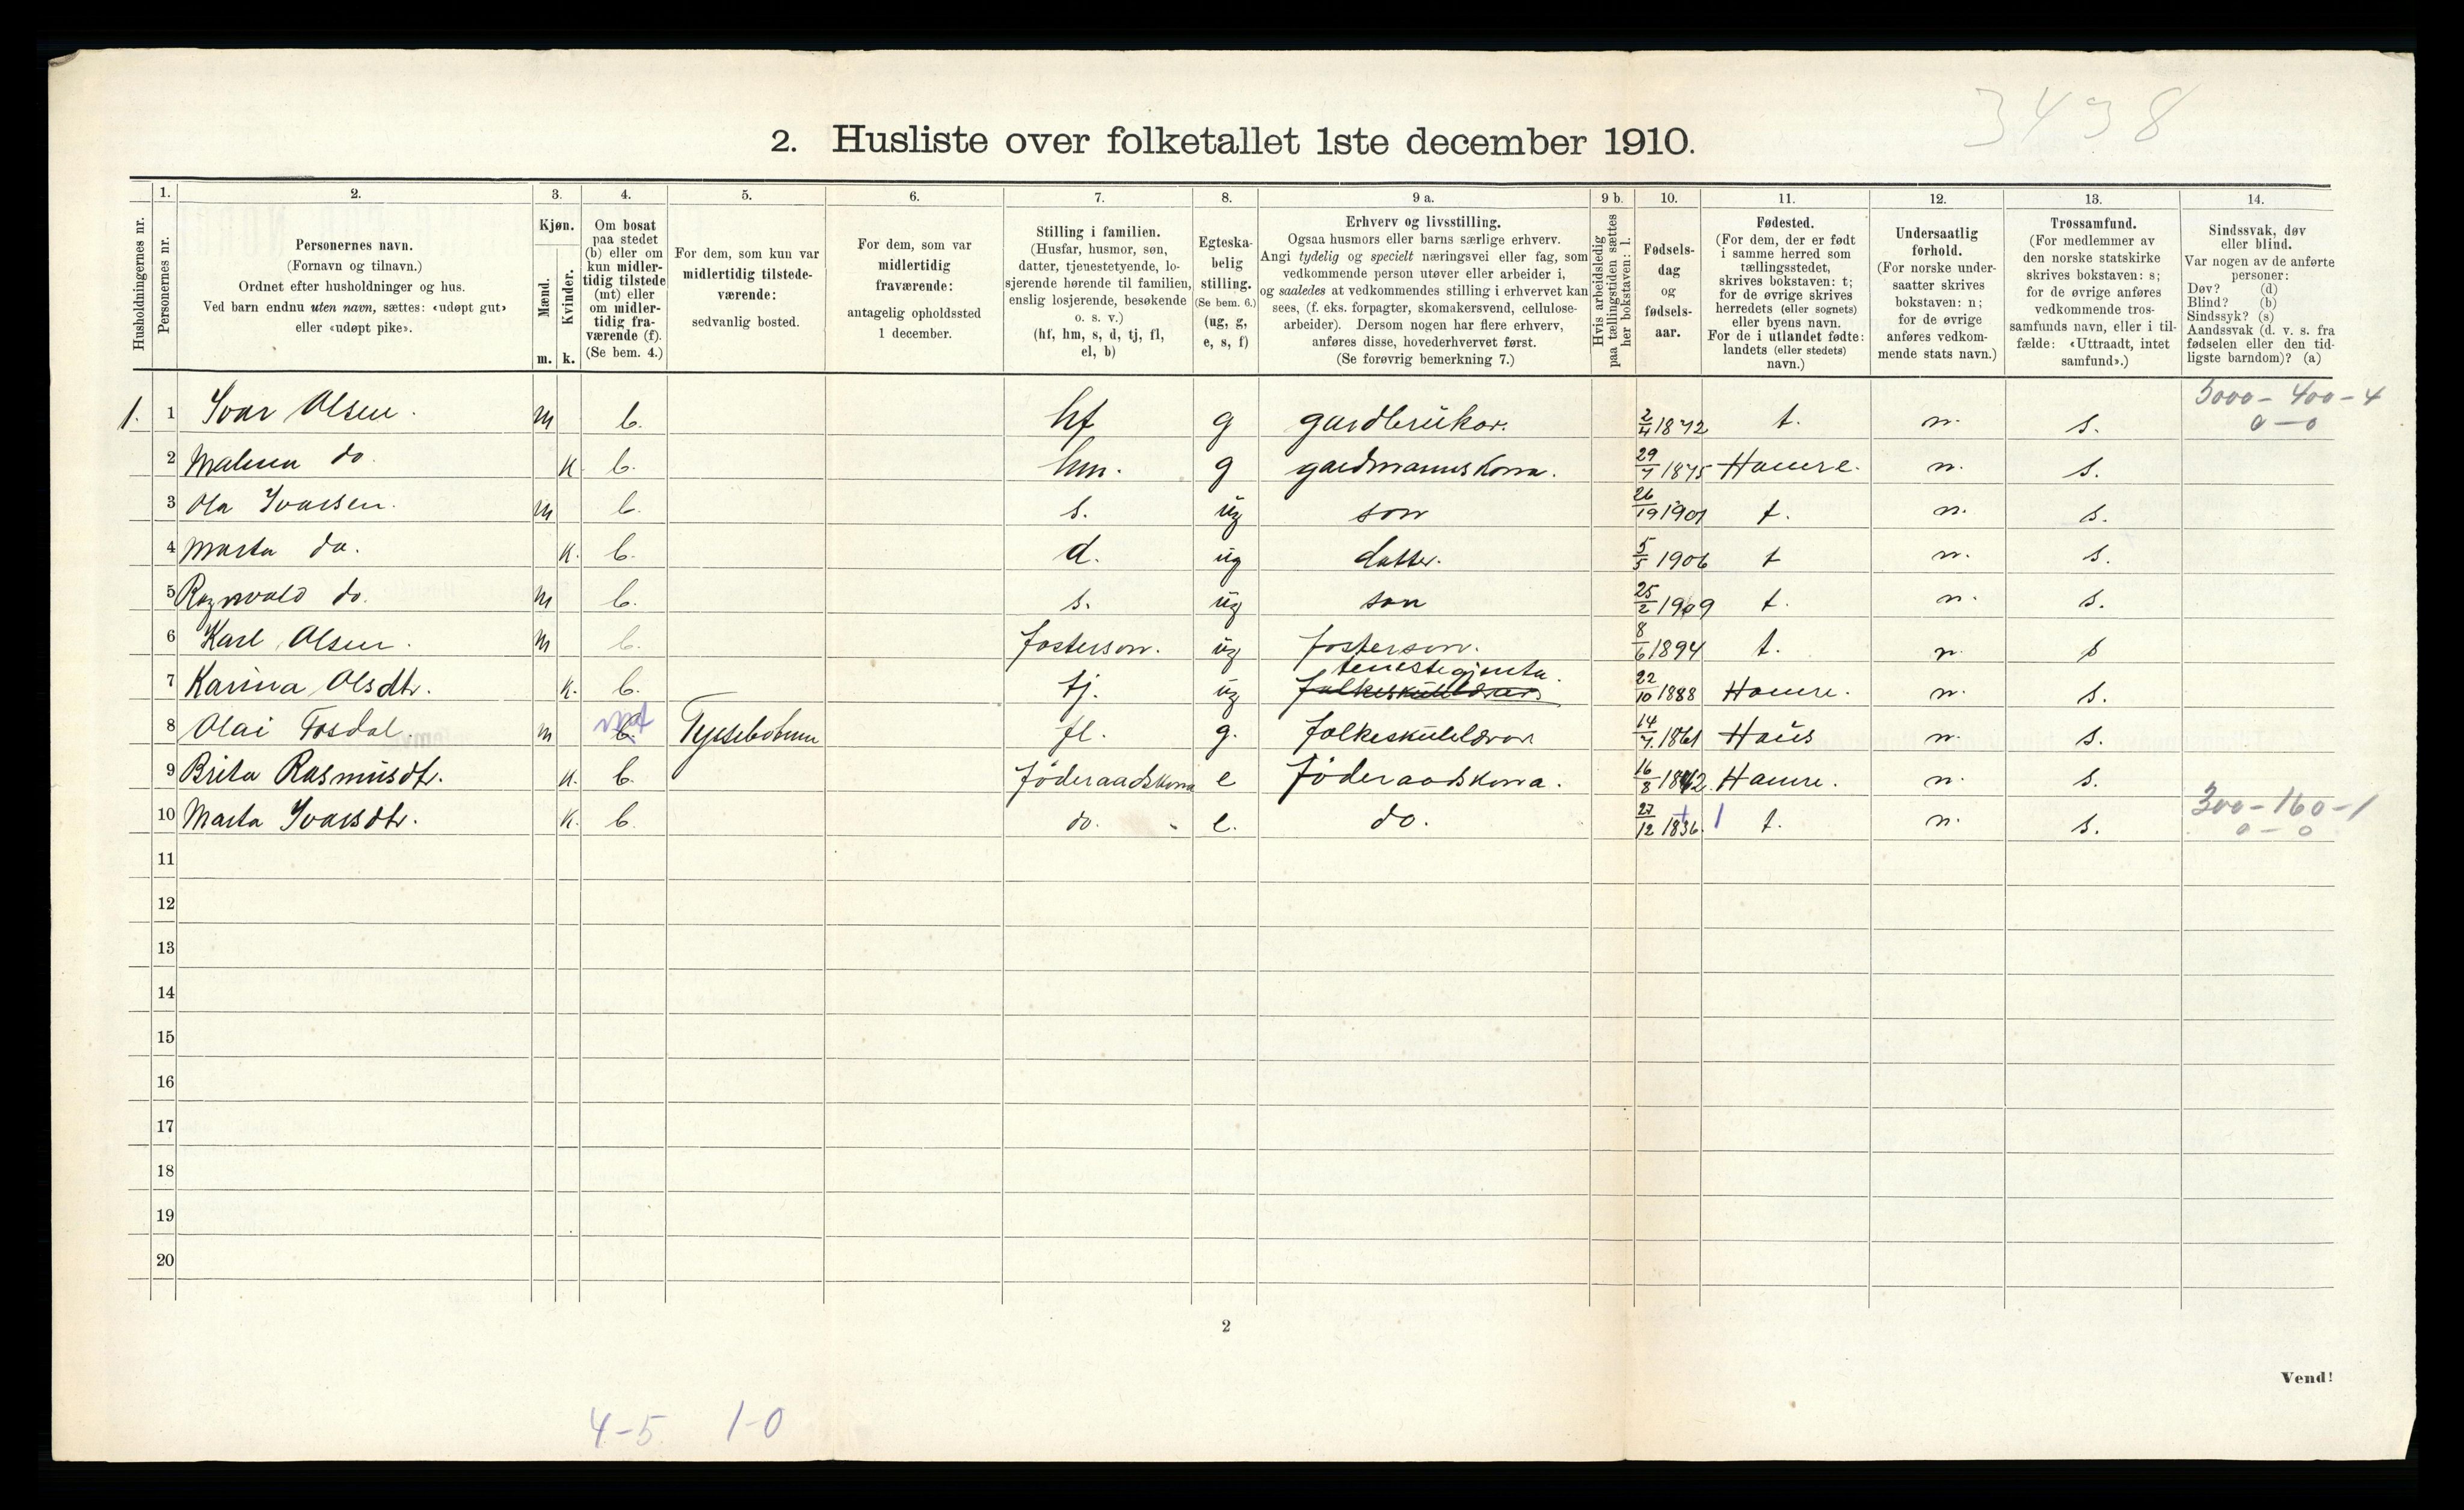 3438
2. Husliste over folketallet 1ste december 1910.
Husholdningernes nr.
1. Personernes nr.
2. Personernes navn. (Fornavn og tilnavn.) Ordnet efter husholdninger og hus. Ved barn endnu uten navn, sættes: «udøpt gut» eller «udøpt pike».
3. Kjøn. Mænd. m. Kvinder. k.
4. Om bosat paa stedet (b) eller om kun midlertidig tilstede (mt) eller om midlertidig fraværende (f). (Se bem. 4.)
5. For dem, som kun var midlertidig tilstedeværende: sedvanlig bosted.
6. For dem, som var midlertidig fraværende: antagelig opholdssted 1 december.
7. Stilling i familien. (Husfar, husmor, søn, datter, tjenestetyende, losjerende hørende til familien, enslig losjerende, besøkende o. s. v.) (hf, hm, s, d, tj, fl, el, b)
8. Egteskabelig stilling. (Se bem. 6.) (ug, g, e, s, f)
9 a. Erhverv og livsstilling. Ogsaa husmors eller barns særlige erhverv. Angi tydelig og specielt næringsvei eller fag, som vedkommende person utøver eller arbeider i, og saaledes at vedkommendes stilling i erhvervet kan sees, (f. eks. forpagter, skomakersvend, cellulosearbeider). Dersom nogen har flere erhverv, anføres disse, hovederhvervet først. (Se forøvrig bemerkning 7.)
9 b. Hvis arbeidsledig paa tællingstiden sættes her bokstaven: l.
10. Fødselsdag og fødselsaar.
11. Fødested. (For dem, der er født i samme herred som tællingsstedet, skrives bokstaven: t; for de øvrige skrives herredets (eller sognets) eller byens navn. For de i utlandet fødte: landets (eller stedets) navn.)
12. Undersaatlig forhold. (For norske undersaatter skrives bokstaven: n; for de øvrige anføres vedkommende stats navn.)
13. Trossamfund. (For medlemmer av den norske statskirke skrives bokstaven: s; for de øvrige anføres vedkommende trossamfunds navn, eller i tilfælde: «Uttraadt, intet samfund».)
14. Sindssvak, døv eller blind. Var nogen av de anførte personer: Døv? (d) Blind? (b) Sindssyk? (s) Aandssvak (d. v. s. fra fødselen eller den tidligste barndom)? (a)
5000 - 400 - 4
0 - 0
1. 1 Ivar Olsen. m b. hf g gardbrukar. 2/4 1872 t. n. s.
2 Malena do. k b. hm. g gardmannskona. 29/7 1875 Hamre. n. s.
3 Ola Ivarsen. m b. s. ug son 26/19 1901 t. n. s.
4 Marta do. k. b. d. ug datter. 5/5 1906 t n. s.
5 Ragnvald do. m b. s. ug son 25/2 1909 t. n. s.
6 Karl Olsen. m b. fosterson. ug fosterson. 8/6 1894 t. n. s
7 Karina Olsdtr. k. b. tj. ug tenestegjenta. folkeskulelærar 22/10 1888 Hamre. n. s.
8 Olai Fosdal. m b. mt fl. g. folkeskulelærar 14/7. 1861 Haus n. s.
9 Brita Rasmusdtr. k. b. føderaadskona e føderaadskona. 16/8 1842. Hamre. n. s.
10 Marta Ivarsdtr. k. b. do. e. do. 27/12 1836. t. n. s.
300 - 160 - 1
0 - 0
11
12
13
14
15
16
17
18
19
20
2
Vend!
4-5 1-0